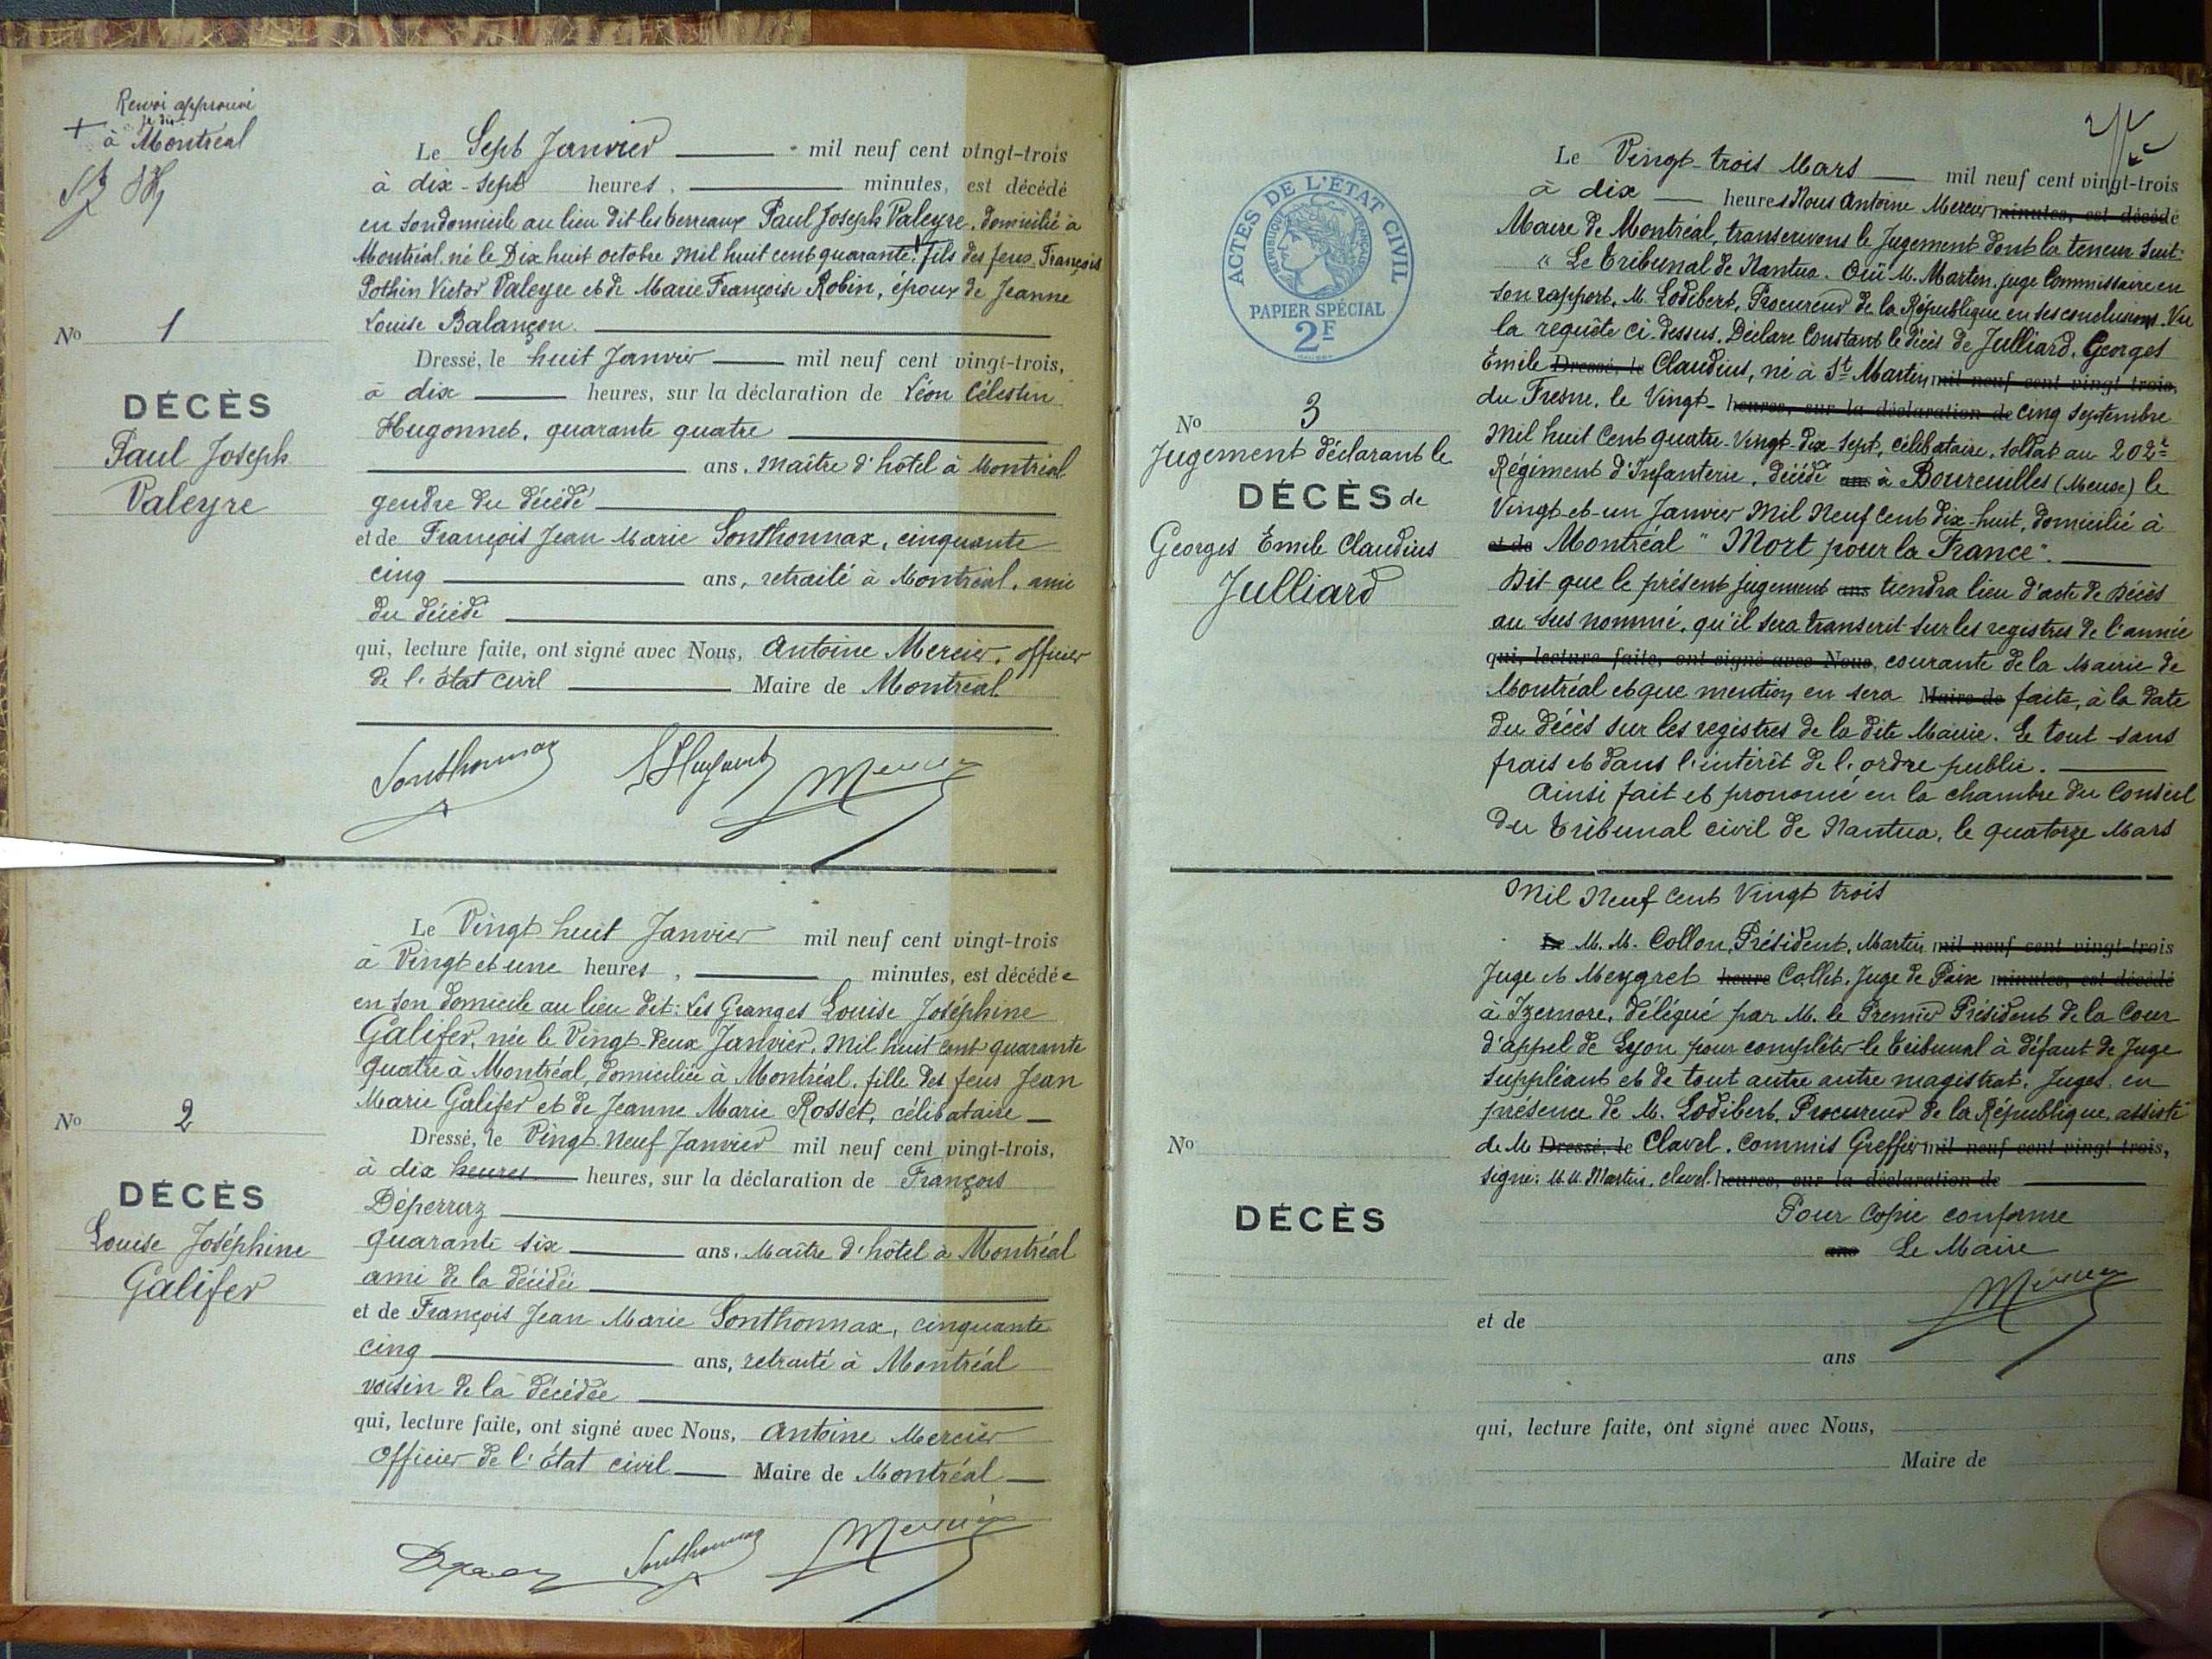 Renvoi approuvé
je dis
+ à Montréal
Le Sept Janvier mil neuf cent vingt-trois
à dix-sept heures, minutes, est décédé
en son domicile au lieu dit les berreaux Paul Joseph Paleyre, domicilié à
Montréal, né le Dix huit octobre Mil huit cent quarante + fils des feus François
Pothin Victor Paleyre et de Marie Françoise Robin, époux de Jeanne
Louise Balançon.
Dressé, le huit Janvier mil neuf cent vingt-trois,
à dix heures, sur la déclaration de Léon Célestin
Hugonnet, quarante quatre
ans, Maître d'hôtel à Montréal
gendre du décédé
et de François Jean Marie Sonthonnax, cinquante
cinq ans, retraité à Montréal, ami
du décédé
qui, lecture faite, ont signé avec Nous, Antoine Mercier, officier
de l'état civil Maire de Montréal
No 1
DÉCÈS
Paul Joseph
Paleyre
Sonthonnax Mercier
Le Vingt huit Janvier mil neuf cent vingt-trois
à Vingt et une heures, minutes, est décédée
en son domicile au lieu dit: Les Granges Louise Joséphine
Galifer, née le Vingt-deux Janvier, Mil huit cent quarante
quatre à Montréal, domiciliée à Montréal, fille des feus Jean
Marie Galifer et de Jeanne Marie Rosset, célibataire
Dressé, le Vingt-Neuf Janvier mil neuf cent vingt-trois,
à dix heures heures, sur la déclaration de François
Déperraz
quarante six ans, Maître d'hôtel à Montréal
ami de la décédée
et de François Jean Marie Sonthonnax, cinquante
cinq ans, retraité à Montréal
voisin de la décédée
qui, lecture faite, ont signé avec Nous, Antoine Mercier
Officier de l'état civil Maire de Montréal
No 2
DÉCÈS
Louise Joséphine
Galifer
Sonthonnax Mercier
ACTES DE L'ÉTAT CIVIL
RÉPUBLIQUE FRANÇAISE
PAPIER SPÉCIAL
2F
No 3
Jugement déclarant le
DÉCÈS de
Georges Emile Claudius
Julliard
Le Vingt-trois Mars mil neuf cent vingt-trois
à dix heures Nous Antoine Mercier minutes, est décédé
Maire de Montréal, transcrivons le Jugement dont la teneur suit:
"Le Tribunal de Nantua. Ouï M. Martin, juge Commissaire en
son rapport, M. Lodibert, Procureur de la République en ses conclusions. Vu
la requête ci-dessus. Déclare Constant le décès de Julliard, Georges
Emile Dressé, le Claudius, né à St Martin mil neuf cent vingt-trois,
du Fresne, le Vingt- heures, sur la déclaration de cinq Septembre
Mil huit Cent quatre-Vingt-dix-sept, célibataire, soldat au 202e
Régiment d'Infanterie, décédé ans à Boureuilles (Meuse) le
Vingt-et-un Janvier Mil Neuf Cent dix-huit, domicilié à
et de Montréal "Mort pour la France".
Dit que le présent jugement ans tiendra lieu d'acte de décès
au sus nommé, qu'il sera transcrit sur les registres de l'année
qui, lecture faite, ont signé avec Nous, courante de la Mairie de
Montréal et que mention en sera Maire de faite, à la date
du décès sur les registres de la dite Mairie. Le tout sans
frais et dans l'intérêt de l'ordre public.
Ainsi fait et prononcé en la chambre du Conseil
du Tribunal civil de Nantua, le quatorze Mars
Mil Neuf Cent Vingt trois
Le M. M. Collon, Président, Martin mil neuf cent vingt-trois
Juge et Meygret heure Collet, Juge de Paix minutes, est décédé
à Izernore, délégué par M. le Premier Président de la Cour
d'appel de Lyon pour compléter le tribunal à défaut de Juge
suppléant et de tout autre autre magistrat, Juges, en
présence de M. Lodibert, Procureur de la République, assisté
de M Dressé, le Clavel, Commis Greffier mil neuf cent vingt-trois,
signé: M.M. Martin, Clavel. heures, sur la déclaration de
Pour Copie conforme
ans Le Maire
Mercier
No
DÉCÈS
et de
ans
qui, lecture faite, ont signé avec Nous,
Maire de